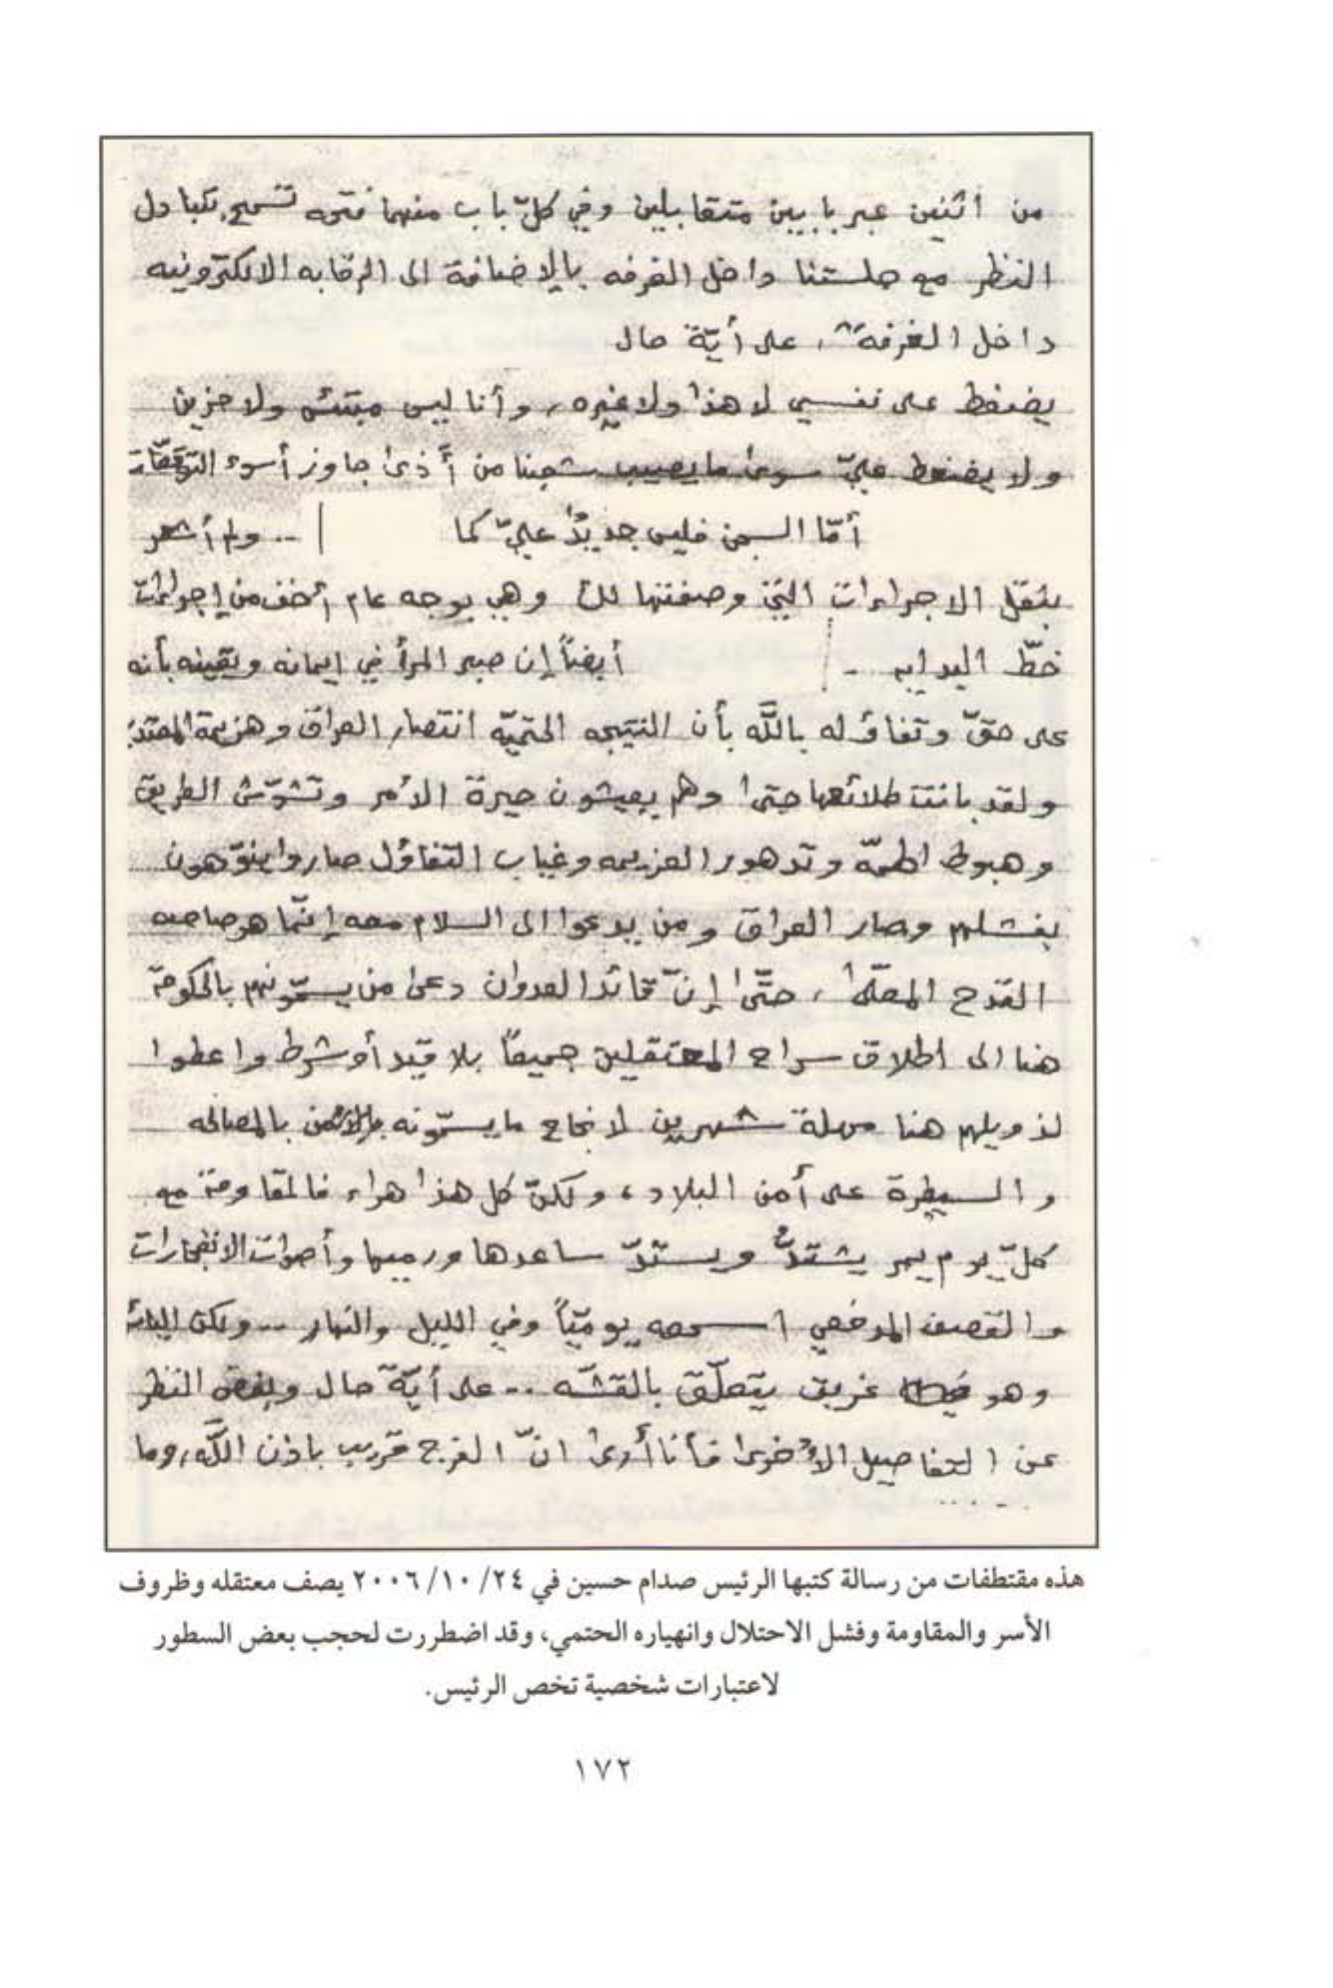 من اثنين عبر بابين متقابلين وفي كلّ باب منهما فتحه تسمح بتبادل
النظر مع جلستنا داخل الغرفه بالاضافة الى الرقابه الالكترونيه
داخل الغرفة، على أيّة حال
يضغط على نفسي لا هذا ولا غيره، وأنا ليس مبتئس ولا حزين
ولا يضغط عليّ سوى ما يصيب شعبنا من أذى جاوز أسوء التوقعّات
أمّا السجن فليس جديدٌ عليّ كما .. ولم أشعر
بثقل الاجراءات التي وصفتها لك وهي بوجه عام أخف من إجراءات
خطّ البدايه - أيضاً إن صبر المرأ في ايمانه ويقينه بأنه
على حقّ وتفاؤله باللَّه بأن النتيجه الحتميّه انتصار العراق وهزيمة المعتدين
ولقد بانت طلائعها حتى وهم يعيشون حيرة الأمر وتشوّش الطريق
وهبوط الهمّه وتدهور العزيمه وغياب التفاؤل صاروا ينوّهون
بفشلهم وصار العراق ومن يدعوا الى السلام معه إنّما هو صاحب
القدح المعلّى، حتّى إنّ قائد العدوان دعى من يسمّونهم بالحكومة
هنا الى اطلاق سراح المعتقلين جميعاً بلا قيد أو شرط واعطوا
لذويلهم هنا مهلة شهرين لانجاح ما يسمّونه بالمصالحه
والسيطرة على أمن البلاد، ولكنّ كل هذا هراء فالمقاومة مع
كلّ يوم يمر يشتدُّ ويستدّ ساعدها ورميها وأصوات الانفجارات
والقصف المدفعي اسمعه يوميّاً وفي الليل والنهار .. ولكن اليائس
وهو غريق يتعلّق بالقشّه .. على أيّة حال وبغض النظر
عن التفاصيل الأخرى فأنا أرى انّ الفرج قريب باذن اللَّه، وما
هذه مقتطفات من رسالة كتبها الرئيس صدام حسين في ٢٤/ ١٠/ ٢٠٠٦ يصف معتقله وظروف
الأسر والمقاومة وفشل الاحتلال وانهياره الحتمي، وقد اضطررت لحجب بعض السطور
لاعتبارات شخصية تخص الرئيس.
١٧٢